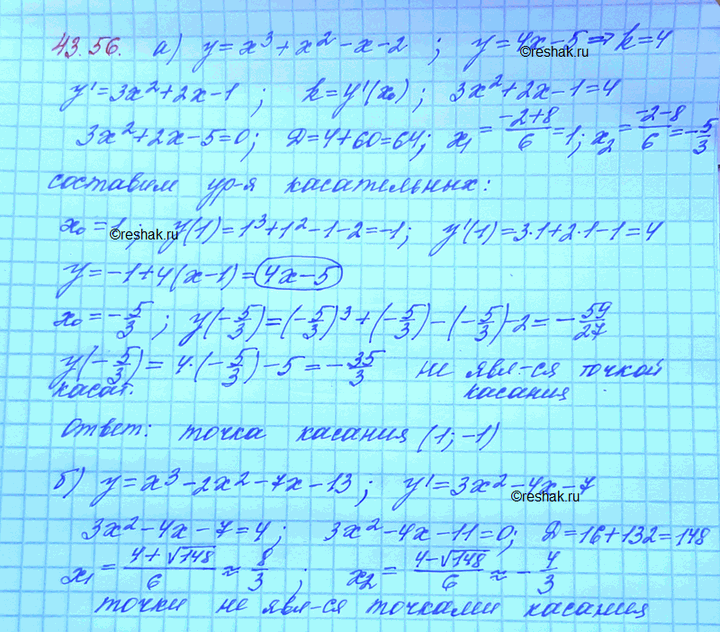 43.56. а) y = x³ + x² - x - 2 ; y = 4x - 5 ⇒ k = 4
©reshak.ru
y' = 3x² + 2x - 1 ; k = y'(x₀) ; 3x² + 2x - 1 = 4
3x² + 2x - 5 = 0; D = 4 + 60 = 64; x₁ = (-2+8)/6 = 1; x₂ = (-2-8)/6 = -5/3
составим ур-я касательных:
x₀ = 1; y(1) = 1³ + 1² - 1 - 2 = -1; y'(1) = 3·1 + 2·1 - 1 = 4
©reshak.ru
y = -1 + 4(x - 1) = 4x - 5
x₀ = -5/3 ; y(-5/3) = (-5/3)³ + (-5/3) - (-5/3) - 2 = -59/27
y(-5/3) = 4·(-5/3) - 5 = -35/3 не явл-ся точкой
касат. касания
Ответ: точка касания (1; -1)
б) y = x³ - 2x² - 7x - 13 ; y' = 3x² - 4x - 7
©reshak.ru
3x² - 4x - 7 = 4 ; 3x² - 4x - 11 = 0; D = 16 + 132 = 148
x₁ = (4+√148)/6 ≈ 8/3 ; x₂ = (4-√148)/6 ≈ -4/3
точки не явл-ся точками касания